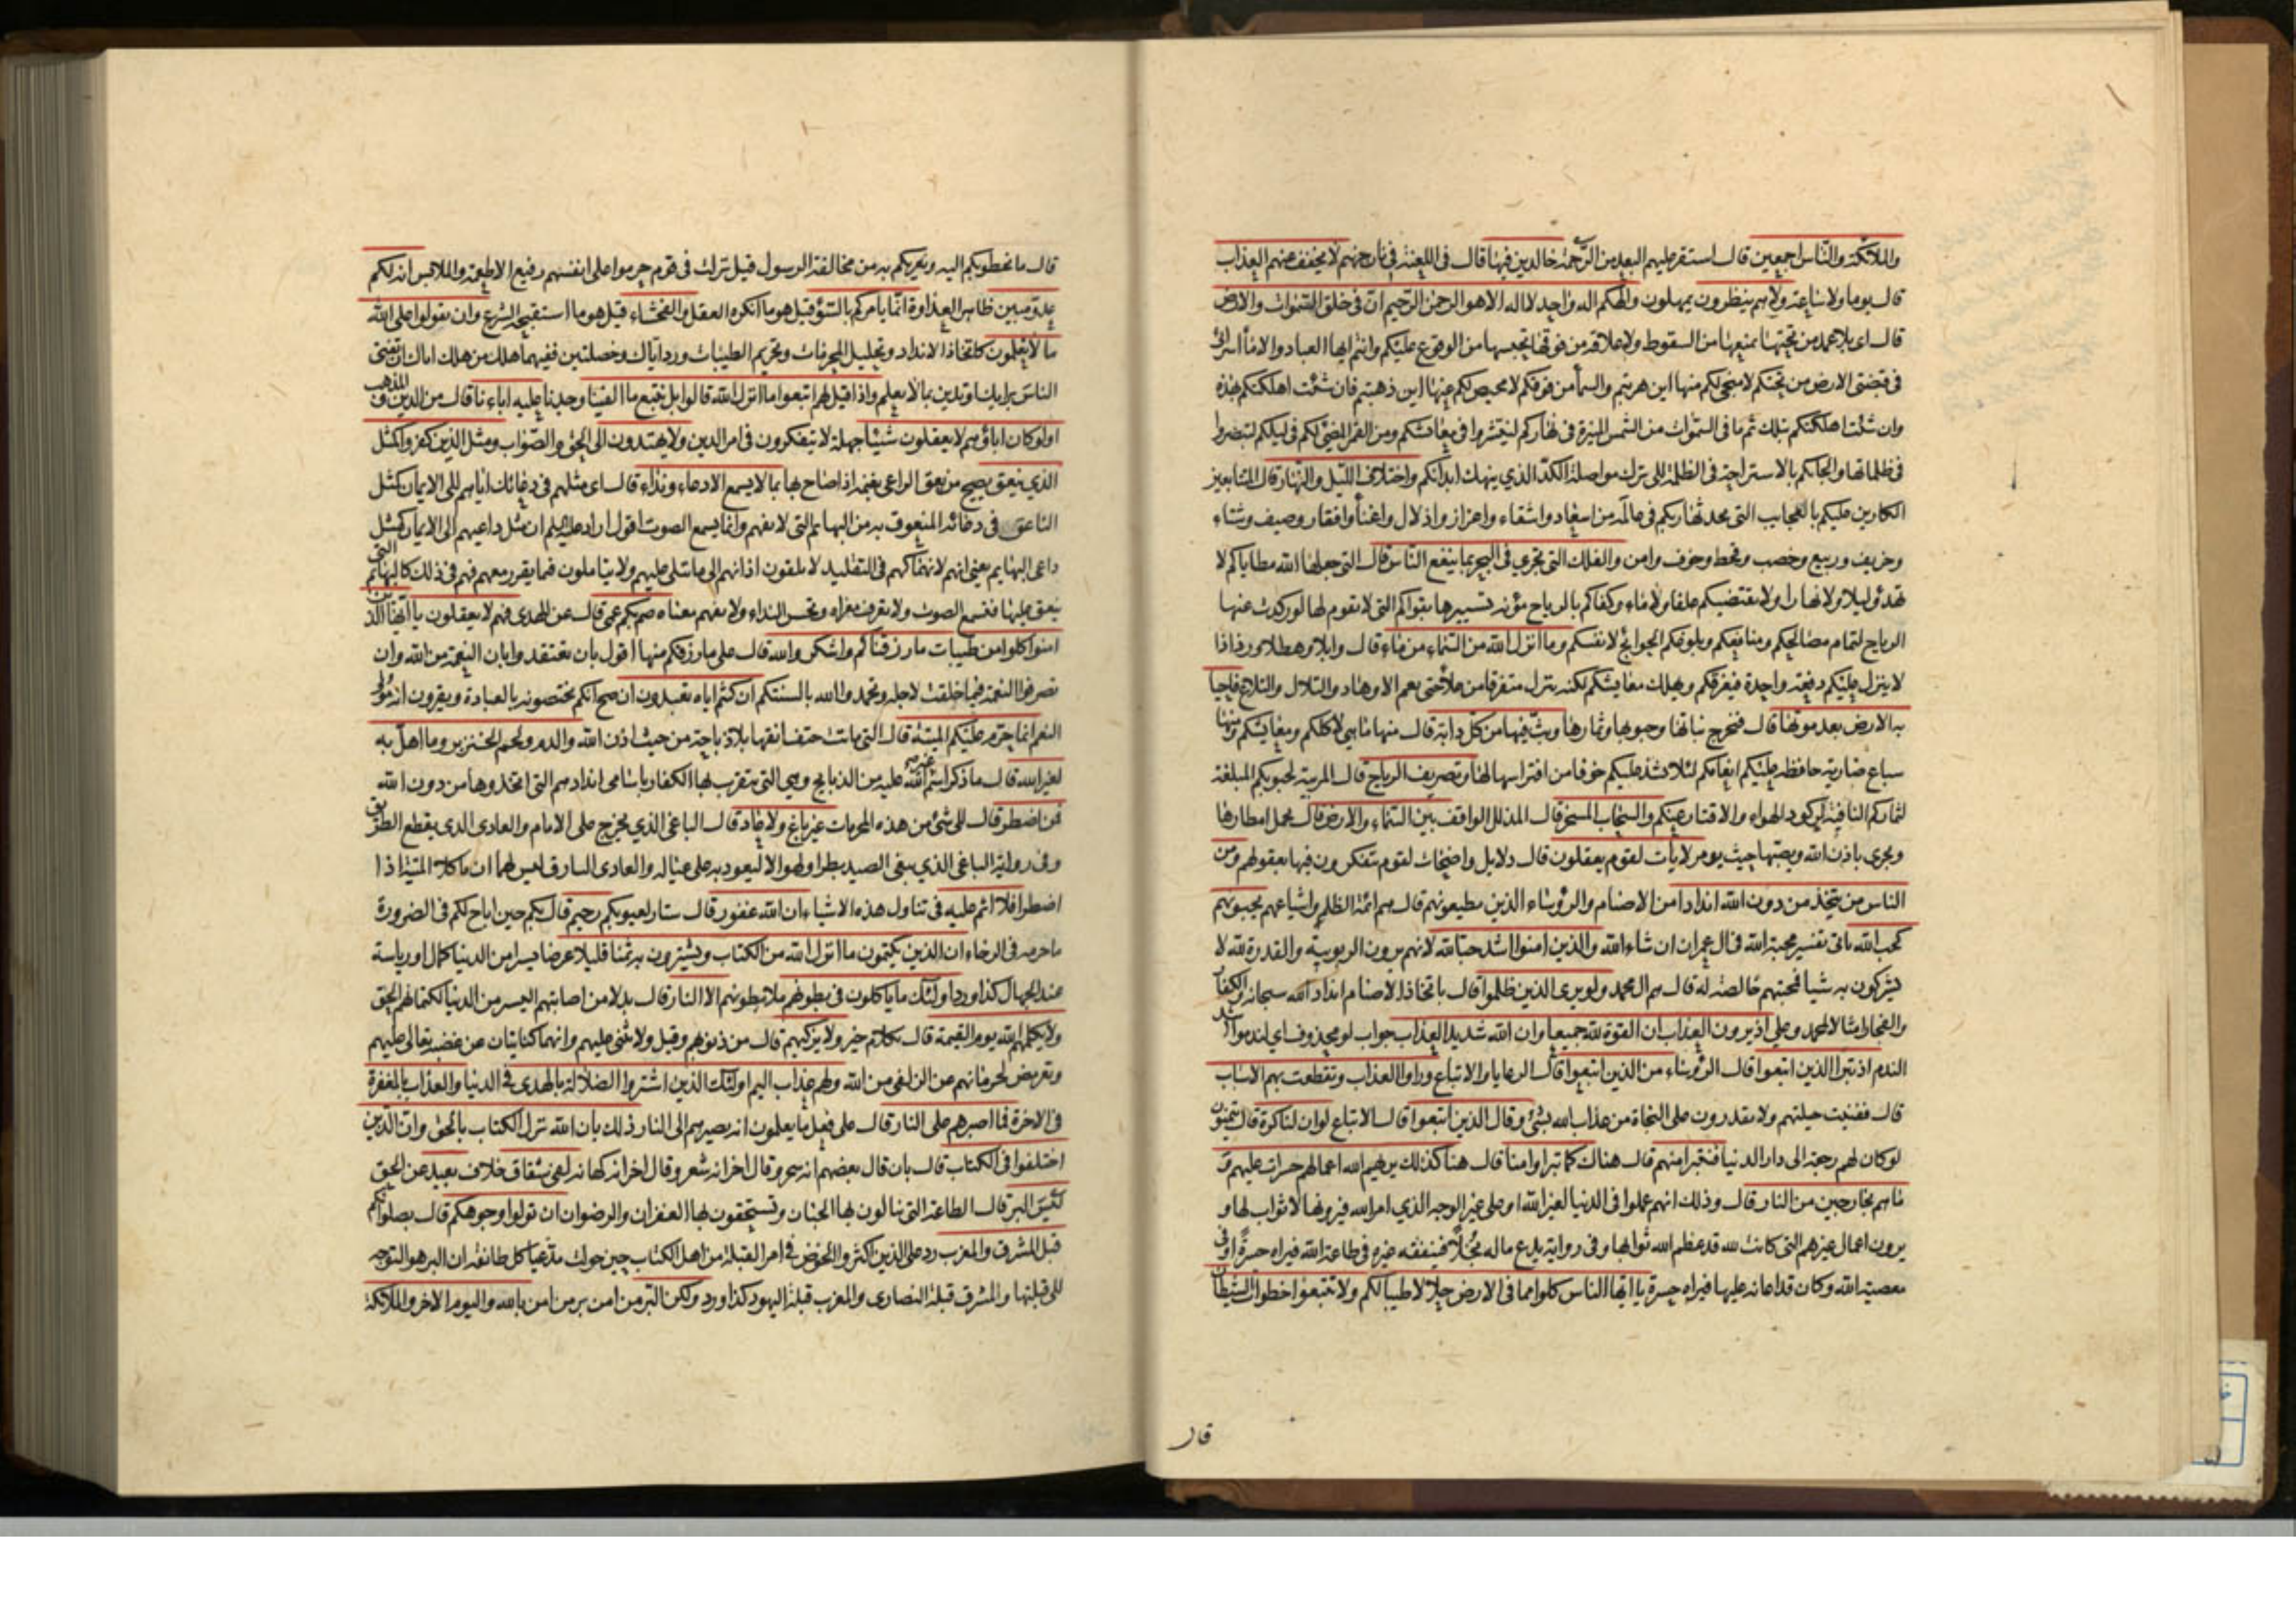 والملائكة والناس اجمعين قال استقر عليهم البعد من الرحمة خالدين فيها قال في اللعنة في نار جهنم لا يخفف عنهم العذاب
قال يوما ولا ساعة ولا هم ينظرون يمهلون والهكم اله واحد لا اله الا هو الرحمن الرحيم ان في خلق السموات والارض
قال اي بلا عمد من تحتها يمنعها من السقوط ولا علاقة من فوقها تحبسها من الوقوع عليكم وانتم ايها العباد والاماء اسراء
في قبضتي الارض من تحتكم لا منجى لكم منها اين هربتم والسماء من فوقكم لا محيص لكم عنها اين ذهبتم فان شئت اهلكتكم بهذه
وان شئت اهلكتكم بتلك ثم ما في السموات من الشمس المنيرة في نهاركم لتنتشروا في معائشكم ومن القمر المضيئ لكم في ليلكم لتبصروا
في ظلماتها والجائكم بالاستراحة في الظلمة الى ترك مواصلة الكد الذي ينهك ابدانكم واختلاف الليل والنهار قال المتتابعين
الكارين عليكم بالعجايب التي يحدثها ربكم في عالمه من اسعاد واشقاء واعزاز واذلال واغناء وافقار وصيف وشتاء
وخريف وربيع وخصب وقحط وخوف وامن والفلك التي تجري في البحر بما ينفع الناس قال التي جعلها الله مطاياكم لا
تهدؤ ليلا ولا نهارا ولا يقتضيكم علفا ولا ماء وكفاكم بالرياح مؤنة تسييرها بقواكم التي لا تقوم لها لو ركدت عنها
الرياح لتمام مصالحكم ومنافعكم وبلوغكم الحوائج لانفسكم وما انزل الله من السماء من ماء قال وابلا وهطلا ورذاذا
لا ينزل عليكم دفعة واحدة فيغرقكم ويهلك معايشكم لكنه ينزل متفرقا من علا حتى يعم الاوهاد والتلال والتلاع فاحيا
به الارض بعد موتها قال فتخرج نباتها وحبوبها وثمارها وبث فيها من كل دابة قال منها ما هي لاكلكم ومعايشكم ومنها
سباع ضارية حافظة عليكم انعامكم لئلا تشذ عليكم خوفا من افتراسها لها وتصريف الرياح قال المربية لحبوبكم المبلغة
لثماركم النافية لركود الهواء والاقتار عنكم والسحاب المسخر قال المذلل الواقف بين السماء والارض قال يحمل امطارها
ويجري باذن الله ويصبها حيث يؤمر لايات لقوم يعقلون قال دلايل واضحات لقوم يتفكرون فيها بعقولهم ومن
الناس من يتخذ من دون الله اندادا من الاصنام والرؤساء الذين يطيعونهم قال هم ائمة الظلم واشياعهم يحبونهم
كحب الله ياتي تفسير محبة الله في ال عمران ان شاء الله والذين امنوا اشد حبا لله لانهم يرون الربوبية والقدرة لله لا
يشركون به شيئا فمحبتهم خالصة له قال هم ال محمد ولو يرى الذين ظلموا قال باتخاذ الاصنام انداد الله سبحانه والكفار
والفجار امثالا لمحمد وعلي اذ يرون العذاب ان القوة لله جميعا وان الله شديد العذاب جواب لو محذوف اي لندموا اشد
الندم اذ تبرا الذين اتبعوا قال الرؤساء من الذين اتبعوا قال الرعايا والاتباع وراوا العذاب وتقطعت بهم الاسباب
قال ففنيت حيلتهم ولا يقدرون على النجاة من عذاب الله بشئ وقال الذين اتبعوا قال الاتباع لو ان لنا كرة قال يتمنون
لو كان لهم رجعة الى دار الدنيا فنتبرا منهم قال هناك كما تبراوا منا قال هنا كذلك يريهم الله اعمالهم حسرات عليهم و
ما هم بخارجين من النار قال وذلك انهم عملوا في الدنيا لغير الله او على غير الوجه الذي امر الله فيرونها لا ثواب لها و
يرون اعمال غيرهم التي كانت لله قد عظم الله ثوابها وفي رواية يدع ماله بخلا فينفقه غيره في طاعة الله فيراه حسرة او في
معصية الله وكان قد اعانه عليها فيراه حسرة يا ايها الناس كلوا مما في الارض حلالا طيبا لكم ولا تتبعوا خطوات الشيطان
قال
قال ما يخطو بكم اليه ويغريكم به من مخالفة الرسول قيل نزلت في قوم حرموا على انفسهم رفيع الاطعمة والملابس انه لكم
عدو مبين ظاهر العداوة انما يامركم بالسوء قيل هو ما انكره العقل والفحشاء قيل هو ما استقبحه الشرع وان تقولوا على الله
ما لا تعلمون كاتخاذ الانداد وتحليل المحرمات وتحريم الطيبات ورد اياك وخصلتين ففيهما هلك من هلك اياك ان تفتي
الناس برايك او تدين بما لا تعلم واذا قيل لهم اتبعوا ما انزل الله قالوا بل نتبع ما الفينا وجدنا عليه اباءنا قال من الدين والمذهب
اولو كان اباؤهم لا يعقلون شيئا جهلة لا يتفكرون في امر الدين ولا يهتدون الى الحق والصواب ومثل الذين كفروا كمثل
الذي ينعق يصيح من نعق الراعي بغنمه اذا صاح بها بما لا يسمع الا دعاء ونداء قال اي مثلهم في دعائك اياهم الى الايمان كمثل
الناعق في دعائه المنعوق به من البهايم التي لا تفهم وانما يسمع الصوت اقول اراد عليه السلم ان مثل داعيهم الى الايمان كمثل
داعي البهايم يعني انهم لانهماكهم في التقليد لا يلقون اذانهم الى ما يتلى عليهم ولا يتاملون فيما يقرر معهم فهم في ذلك كالبهائم التي
ينعق عليها فتسمع الصوت ولا تعرف مغزاه وتحس النداء ولا تفهم معناه صم بكم عمي قال عن الهدى فهم لا يعقلون يا ايها الذين
امنوا كلوا من طيبات ما رزقناكم واشكروا لله قال على ما رزقكم منها اقول بان تعتقدوا بان النعمة من الله وان
تصرفوا النعمة فيما خلقت لاجله وتحمدوا الله بالسنتكم ان كنتم اياه تعبدون ان صح انكم تختصونه بالعبادة وتقرون انه مولى
النعم انما حرم عليكم الميتة قال التي ماتت حتف انفها بلا ذباحة من حيث اذن الله والدم ولحم الخنزير وما اهل به
لغير الله قال ما ذكر اسم غير الله عليه من الذبايح وهي التي يتقرب بها الكفار باسامي اندادهم التي اتخذوها من دون الله
فمن اضطر قال الى شئ من هذه المحرمات غير باغ ولا عاد قال الباغي الذي يخرج على الامام والعادي الذي يقطع الطريق
وفي رواية الباغي الذي يبغي الصيد بطرا ولهوا لا ليعود به على عياله والعادي السارق ليس لهما ان ياكلا الميتة اذا
اضطرا فلا اثم عليه في تناول هذه الاشياء ان الله غفور قال ستار لعيوبكم رحيم قال بكم حين اباح لكم في الضرورة
ما حرمه في الرخاء ان الذين يكتمون ما انزل الله من الكتاب ويشترون به ثمنا قليلا عرضا يسيرا من الدنيا كمال او رياسة
عند الجهال كذا ورد اولئك ما ياكلون في بطونهم ملأ بطونهم الا النار قال بدلا من اصابتهم اليسير من الدنيا لكتمانهم الحق
ولا يكلمهم الله يوم القيمة قال بكلام خير ولا يزكيهم قال من ذنوبهم وقيل ولا يثني عليهم وانهما كنايتان عن غضبه تعالى عليهم
وتعريض لحرمانهم عن الزلفى من الله ولهم عذاب اليم اولئك الذين اشتروا الضلالة بالهدى في الدنيا والعذاب بالمغفرة
في الاخرة فما اصبرهم على النار قال على فعل ما يعلمون انه يصيرهم الى النار ذلك بان الله نزل الكتاب بالحق وان الذين
اختلفوا في الكتاب قال بان قال بعضهم انه سحر وقال اخر انه شعر وقال اخر انه كهانة لفي شقاق خلاف بعيد عن الحق
ليس البر قال الطاعة التي تنالون بها الجنان وتستحقون بها الغفران والرضوان ان تولوا وجوهكم قال بصلواتكم
قبل المشرق والمغرب رد على الذين اكثروا الخوض في امر القبلة من اهل الكتاب حين حولت مدعيا كل طائفة ان البر هو التوجه
الى قبلتها والمشرق قبلة النصارى والمغرب قبلة اليهود كذا ورد ولكن البر من امن بر من امن بالله واليوم الاخر والملائكة